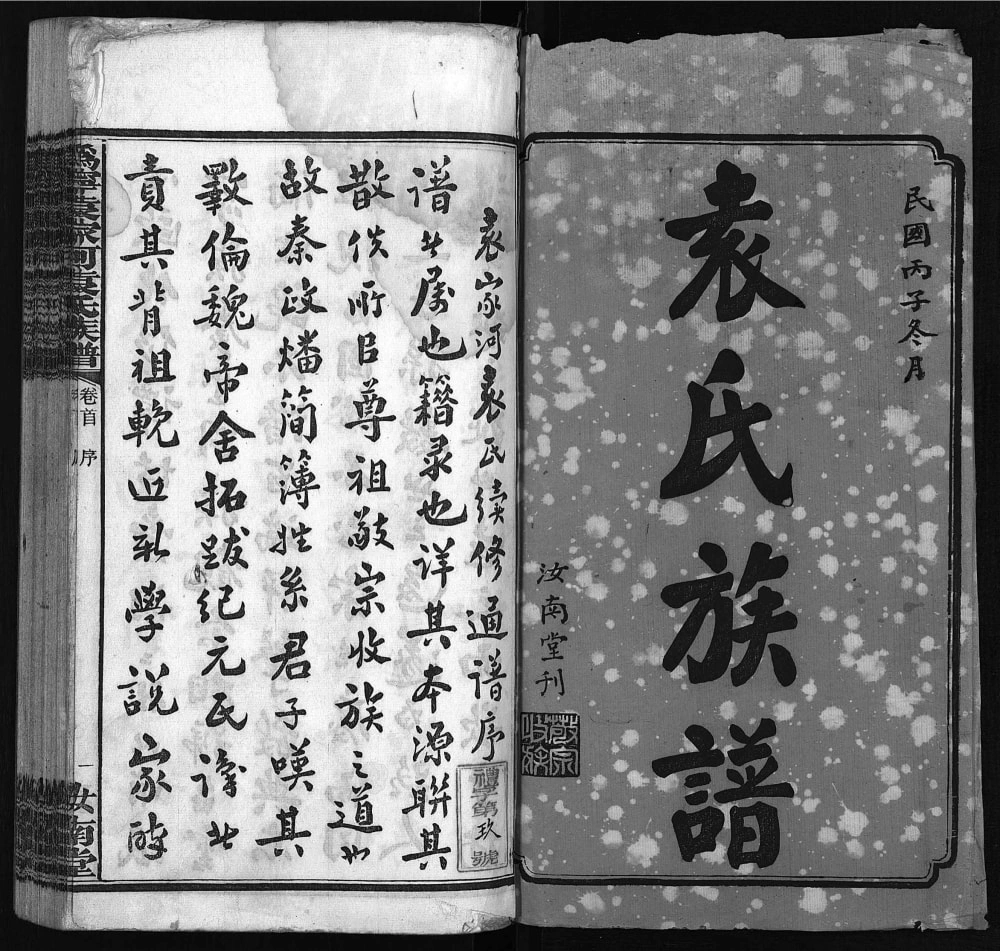 民國丙子冬月
袁氏族譜
汝南堂刊
敬宗收族
袁家河袁氏續修通譜序
禮字第玖號
譜世屬也籍录也详其本源聯其
散佚所㠯尊祖敬宗收族之道也
故秦政燔简簿姓系君子嘆其
斁倫魏帝舍拓跋纪元氏谤其
責其背祖輓近新學説家時
寧袁家河袁氏族譜
卷首 序
一
汝南堂